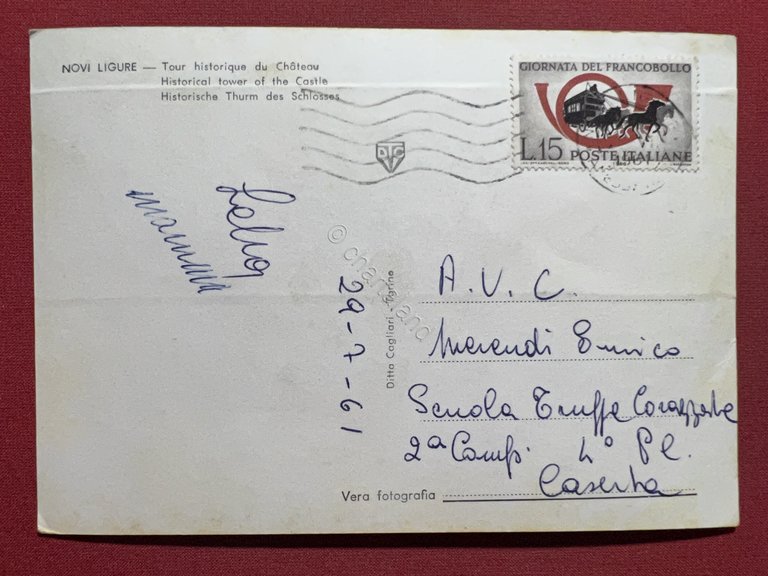 NOVI LIGURE — Tour historique du Château
Historical tower of the Castle
Historische Thurm des Schlosses
GIORNATA DEL FRANCOBOLLO
L.15 POSTE ITALIANE
29-7-61
Ditta Cagliari - Tigrine
A. V. C.
Merendi Enrico
Scuola Truppe Corazzate
2ª Comp. 4° Pl.
Caserta
Vera fotografia